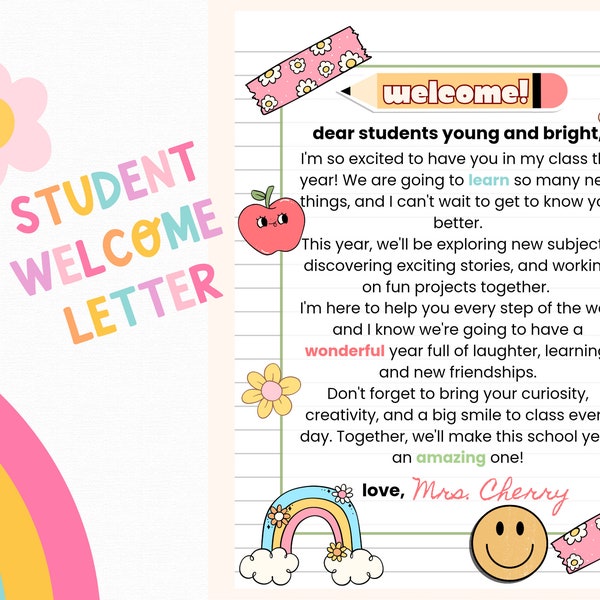 STUDENT
WELCOME
LETTER
welcome!
dear students young and bright,
I'm so excited to have you in my class
year! We are going to learn so many
things, and I can't wait to get to know
better.
This year, we'll be exploring new
discovering exciting stories, and
on fun projects together.
I'm here to help you every step of the
and I know we're going to have a
wonderful year full of laughter,
and new friendships.
Don't forget to bring your curiosity,
creativity, and a big smile to class
day. Together, we'll make this school
an amazing one!
love, Mrs. Cherry